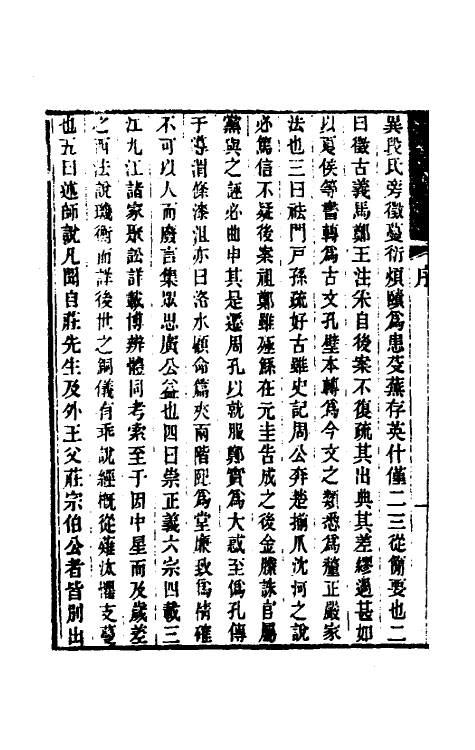 序
異段氏旁徵蔓衍煩賾爲患芟蕪存英什僅二三從簡要也二
曰徵古義馬鄭王注采自後案不復疏其出典其差繆過甚如
以夏侯等書轉爲古文孔壁本轉爲今文之類悉爲釐正嚴家
法也三曰祛門戶孫疏好古雖史記周公奔楚揃爪沈河之說
必篤信不疑後案祖鄭雖殛鯀在元圭告成之後金縢誅官屬
黨與之誣必曲申其是遷周孔以就服鄭實爲大惑至僞孔傳
于導渭條漆沮亦曰洛水顧命篇夾兩階戺爲堂廉致爲情確
不可以人而廢言集眾思廣公益也四曰崇正義六宗四載三
江九江諸家聚訟詳載博辨體同考索至于因中星而及歲差
之西法說璣衡而詳後世之銅儀有乖說經概從薙汰懼支蔓
也五曰述師說凡聞自莊先生及外王父莊宗伯公者皆別出